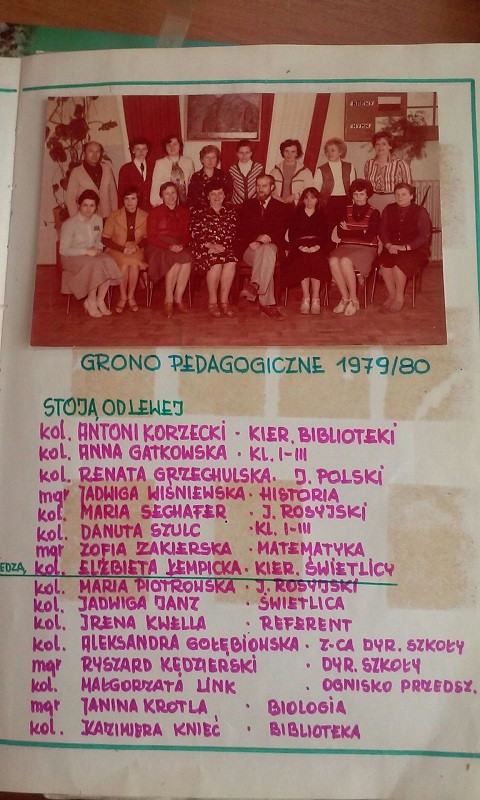 HYMN
GRONO PEDAGOGICZNE 1979/80
STOJĄ OD LEWEJ
kol. ANTONI KORZECKI · KIER. BIBLIOTEKI
kol. ANNA GATKOWSKA · KL. I-III
kol. RENATA GRZECHULSKA. J. POLSKI
mgr JADWIGA WIŚNIEWSKA · HISTORIA
kol. MARIA SEGHAFER · J. ROSYJSKI
kol. DANUTA SZULC · KL. I-III
mgr ZOFIA ZAKIERSKA · MATEMATYKA
kol. ELŻBIETA ŁEMPICKA · KIER. ŚWIETLICY
kol. MARIA PIOTROWSKA · J. ROSYJSKI
kol. JADWIGA JANZ · ŚWIETLICA
kol. IRENA KWELLA · REFERENT
kol. ALEKSANDRA GOŁĘBIOWSKA · Z-CA DYR. SZKOŁY
mgr RYSZARD KĘDZIERSKI · DYR. SZKOŁY
kol. MAŁGORZATA LINK · OGNISKO PRZEDSZ.
mgr JANINA KROTLA · BIOLOGIA
kol. KAZIMIERA KNIEĆ · BIBLIOTEKA